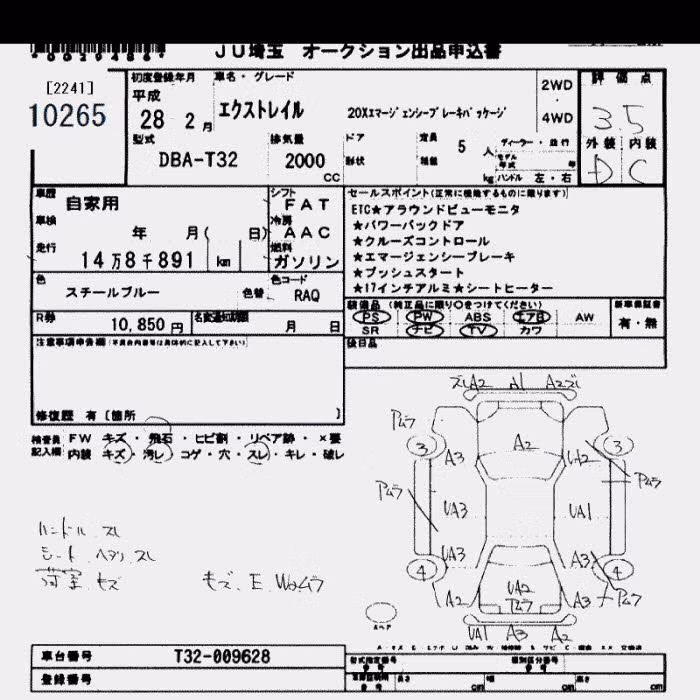 *0029486*
JU埼玉 オークション出品申込書
[2241]
10265
初度登録年月 車名・グレード
平成
28 2月 エクストレイル 20Xエマージェンシーブレーキパッケージ
2WD
・
4WD
評価点
3.5
外装 内装
D C
型式 排気量 ドア 定員 ディーラー・並行
DBA-T32 2000 CC 形状 5人 モデル年式 年
kg ハンドル 左・右
車歴 自家用
シフト FAT
車検 年 月( 日)
冷房 AAC
走行 14万8千891 km
燃料 ガソリン
セールスポイント(正常に機能するものに限ります)
ETC★アラウンドビューモニタ
★パワーバックドア
★クルーズコントロール
★エマージェンシーブレーキ
★プッシュスタート
★17インチアルミ★シートヒーター
色 スチールブルー 色替 色コード RAQ
装備品(純正品に限り○をつけてください) 新車保証書
PS PW ABS エアB AW 有・無
SR ナビ TV カワ
R券 10,850円 名変通知期限 月 日
後日品
注意事項申告欄
修復歴 有 [箇所 ]
検査員 FW キズ・飛石・ヒビ割・リペア跡・×要
記入欄 内装 キズ・汚レ・コゲ・穴・スレ・キレ・破レ
ズレA2 A1 A2ズレ
Pムラ
3 A2 3
A3 UA2
Pムラ Pムラ
UA3 UA1
UA3 A3
4 4
UA2
A2 Pムラ A3 Pムラ
UA1 A3 A2
ハンドル スレ
シート ヘタリ スレ
荷室 キズ
キズ、E、Wムラ
スペア
車台番号 T32-009628
登録番号
型式指定番号 類別区分番号
長さ cm 幅 cm 高さ cm